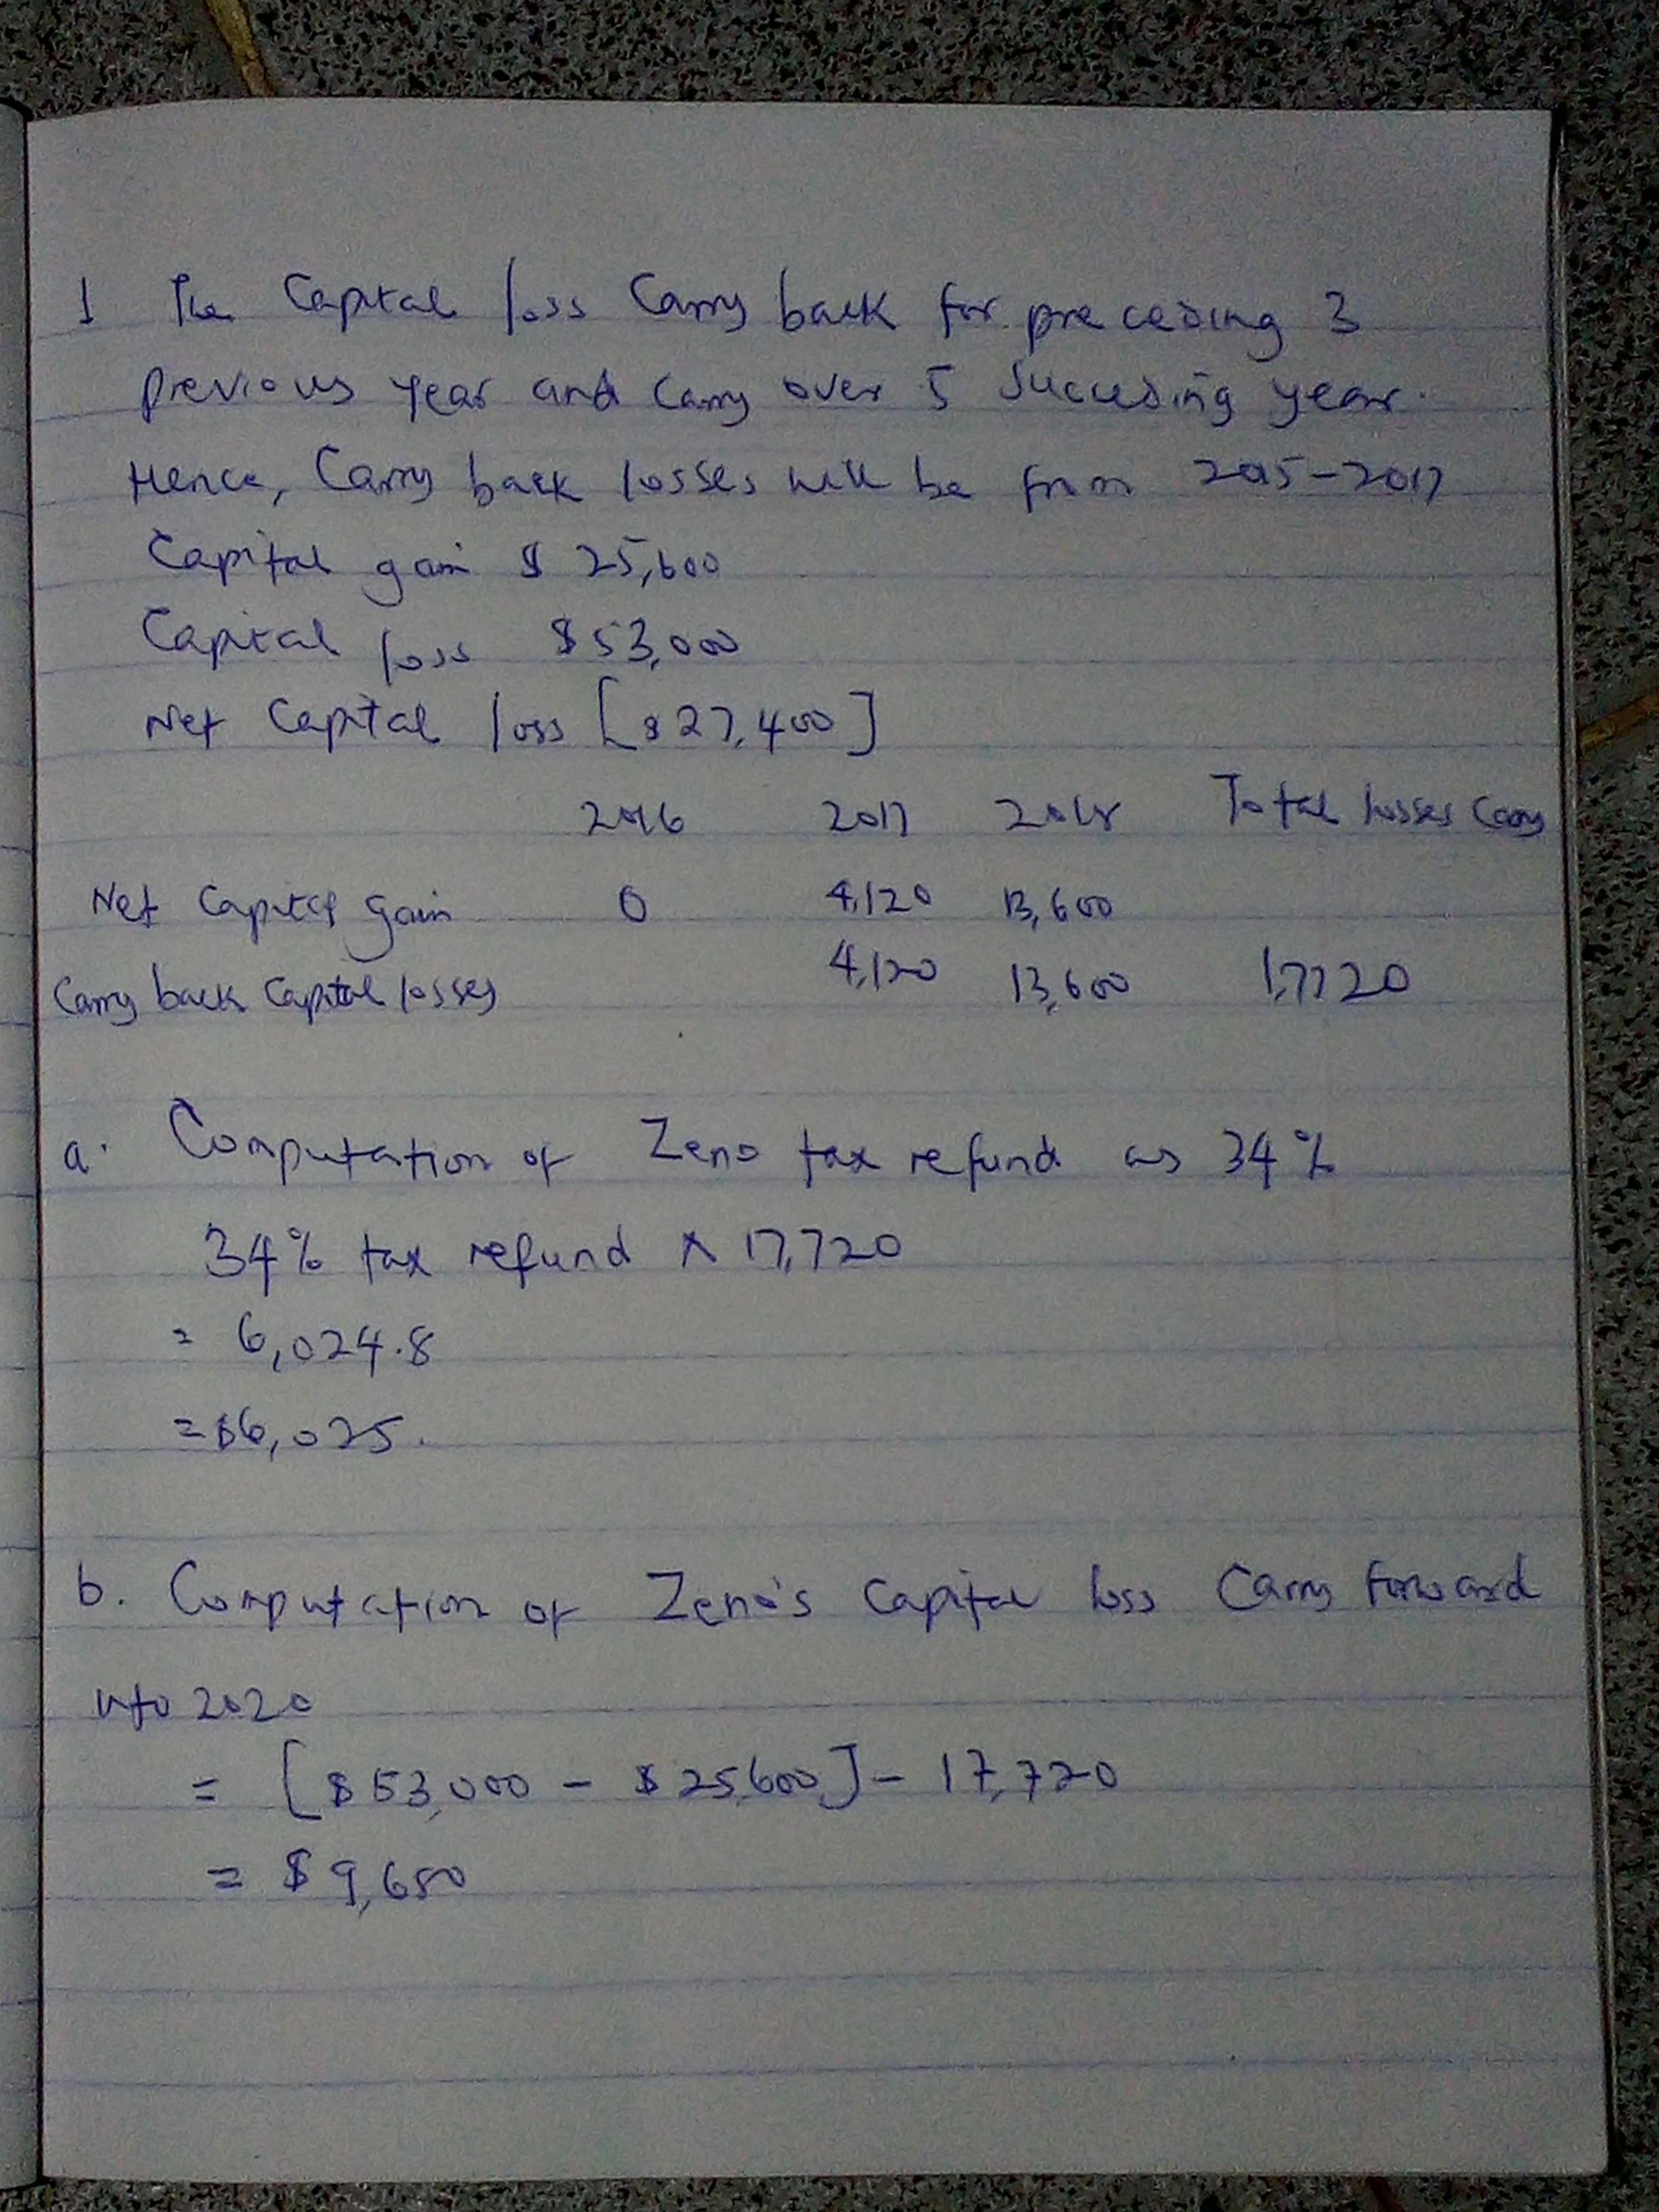 1 The Capital loss Carry back for preceding 3
previous year and carry over 5 Succeeding year.
Hence, Carry back losses will be from 2015-2017
Capital gain $ 25,600
Capital loss $53,000
Net Capital loss [$27,400]
2016 2017 2018 Total losses Carry
Net Capital gain 0 4,120 13,600
Carry back Capital losses 4,120 13,600 17,720
a. Computation of Zeno tax refund as 34%
34% tax refund × 17,720
= 6,024.8
= $6,025.
b. Computation of Zeno's Capital loss Carry forward
into 2020
= [$53,000 - $25,600] - 17,720
= $9,680